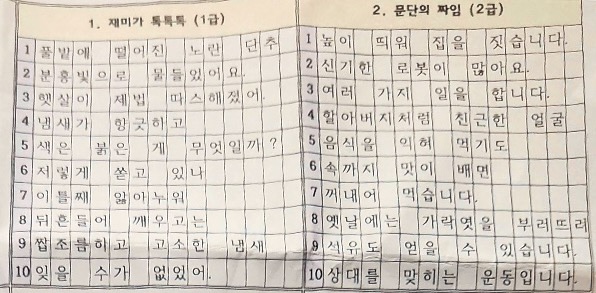 1. 재미가 톡톡톡 (1급)
1 풀밭에 떨어진 노란 단추
2 분홍빛으로 물들었어요.
3 햇살이 제법 따스해졌어.
4 냄새가 향긋하고
5 색은 붉은 게 무엇일까?
6 저렇게 쏟고 있나
7 이틀째 앓아누워
8 뒤흔들어 깨우고는
9 짭조름하고 고소한 냄새
10 잊을 수가 없었어.
2. 문단의 짜임 (2급)
1 높이 띄워 집을 짓습니다.
2 신기한 로봇이 많아요.
3 여러 가지 일을 합니다.
4 할아버지처럼 친근한 얼굴
5 음식을 익혀 먹기도
6 속까지 맛이 배면
7 꺼내어 먹습니다.
8 옛날에는 가락엿을 부러뜨려
9 석유도 얻을 수 있습니다.
10 상대를 맞히는 운동입니다.